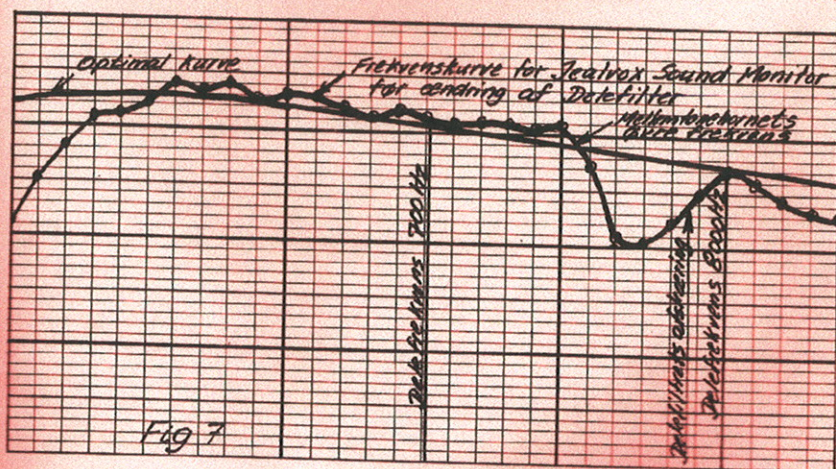 Optimal kurve
Frekvenskurve for Jealvox Sound Monitor
før ændring af Delefilter
Mellemtonehornets
øvre frekvens
Delefrekvens 700 Hz
Delefiltrets afskæring
Delefrekvens 8000Hz
Fig 7